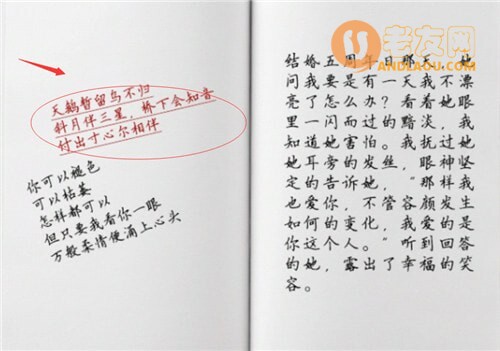 天鹅暂留鸟不归
斜月伴三星，桥下会知音
付出寸心尔相伴
你可以褪色
可以枯萎
怎样都可以
但只要我看你一眼
万般柔情便涌上心头
老友网
ANDLAOU.COM
结婚五周年日那天，她
问我要是有一天我不漂
亮了怎么办？看着她眼
里一闪而过的黯淡，我
知道她害怕。我抚过她
她耳旁的发丝，眼神坚
定的告诉她，“那样我
也爱你，不管容颜发生
如何的变化，我爱的是
你这个人。”听到回答
的她，露出了幸福的笑
容。